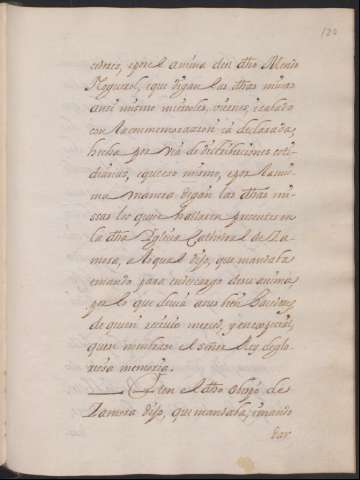 120
ced​ores, e por el anima del dho Mendo
Noguerol, e que digan las dhas misas
ansi mismo miercoles, viernes, e sabado
con la conmemoracion ia declarada,
hecha por via de distribuciones coti-
dianas, e que eso mismo, e por la mis-
ma manera digan las dhas mi-
ssas los que se hallaren presentes en
la dha Iglesia Cathedral de Za-
mora, e lo qual dijo, que mandaba
e mando para en descargo de su anima
por lo que devia a sus bien hachores,
de quien recivio merced, y en especial,
quien nombran el señor Rey de glo-
riosa memoria.
Iten el dho obispo de
Zamora dijo, que mandaba, e mando
dar